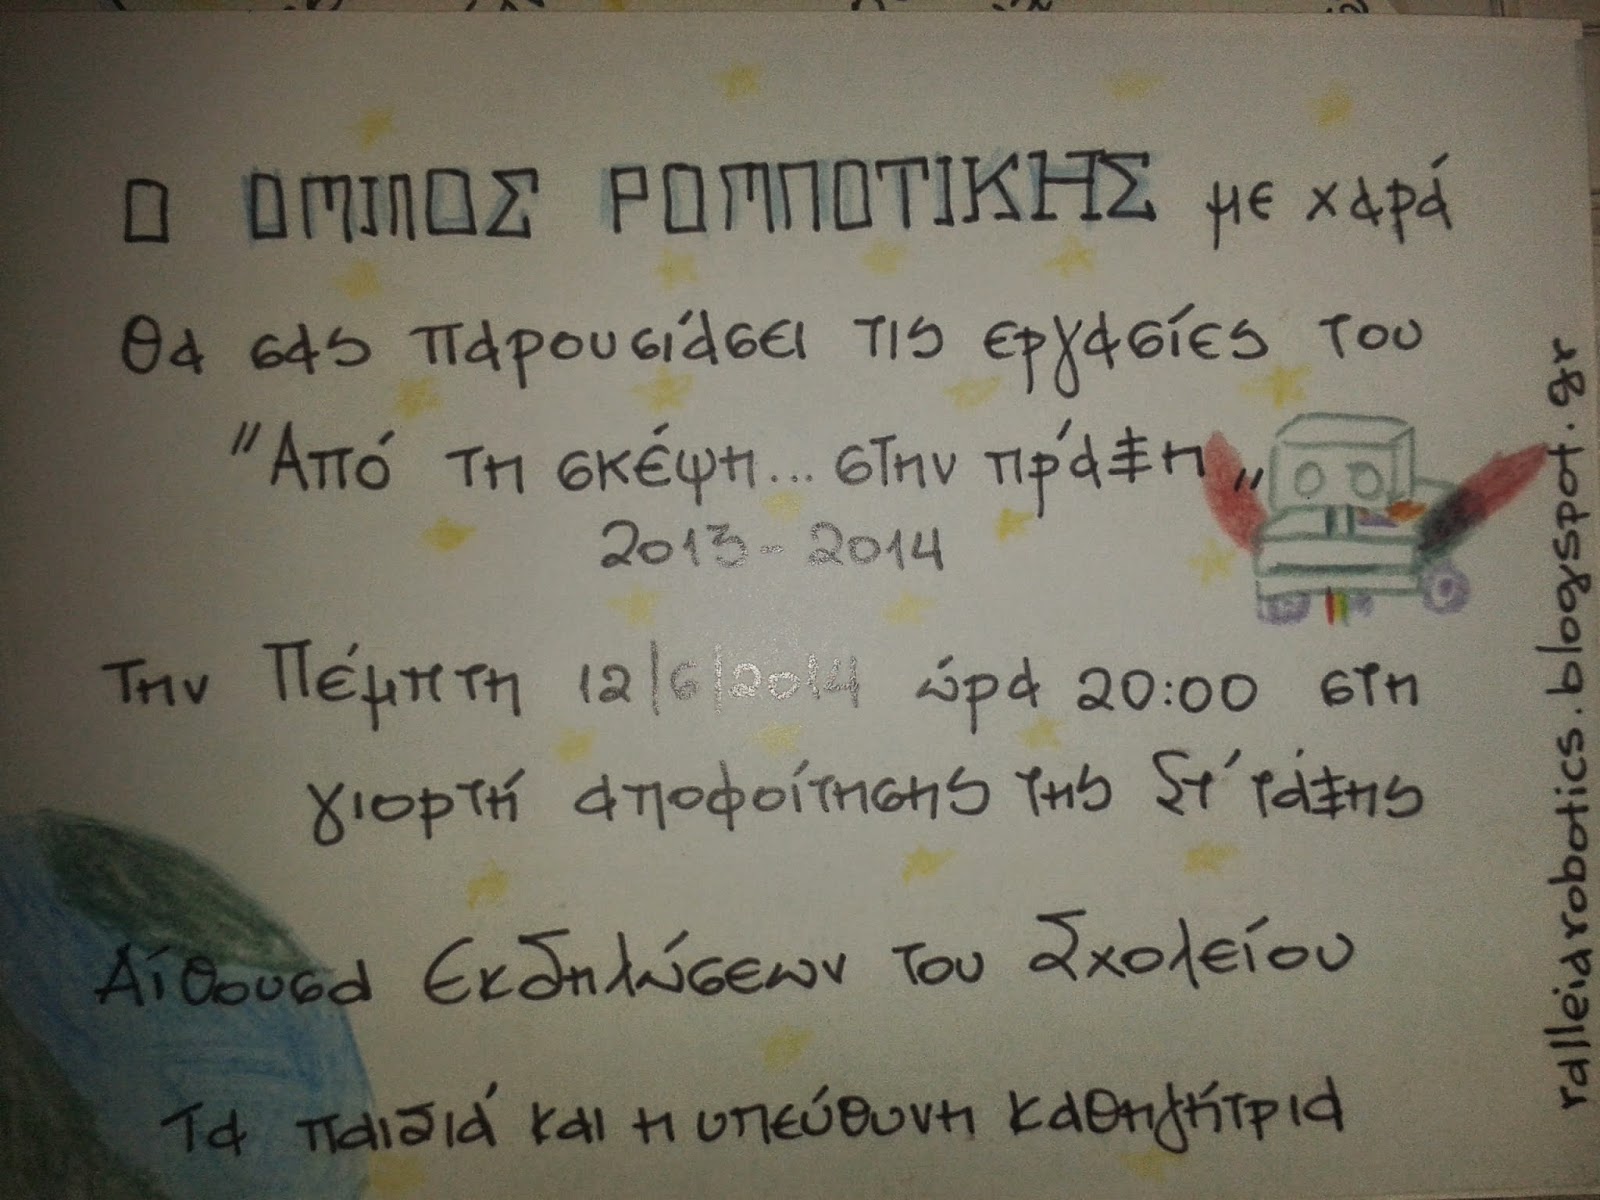 Ο ΟΜΙΛΟΣ ΡΟΜΠΟΤΙΚΗΣ με χαρά
θα σας παρουσιάσει τις εργασίες του
"Από τη σκέψη... στην πράξη„
2013-2014
την Πέμπτη 12/6/2014 ώρα 20:00 στη
γιορτή αποφοίτησης της Στ' τάξης
Αίθουσα Εκδηλώσεων του Σχολείου
Τα παιδιά και η υπεύθυνη καθηγήτρια
ralleiarobotics.blogspot.gr